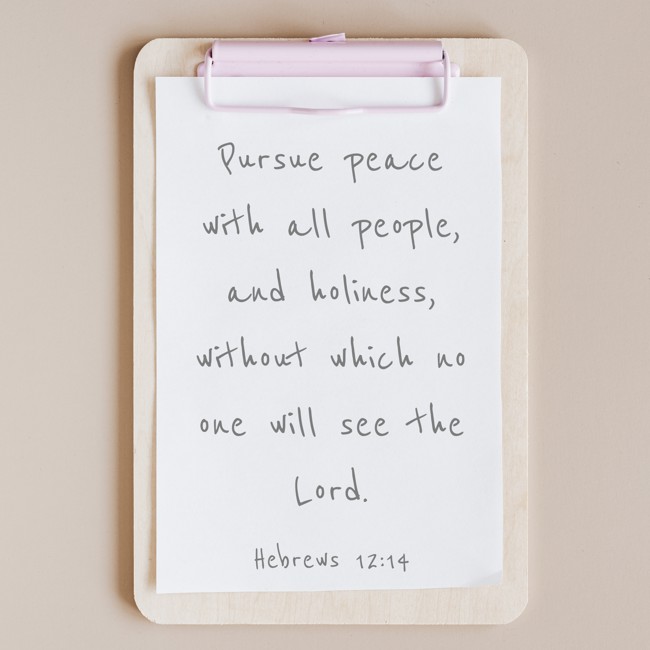 Pursue peace
with all people,
and holiness,
without which no
one will see the
Lord.
Hebrews 12:14